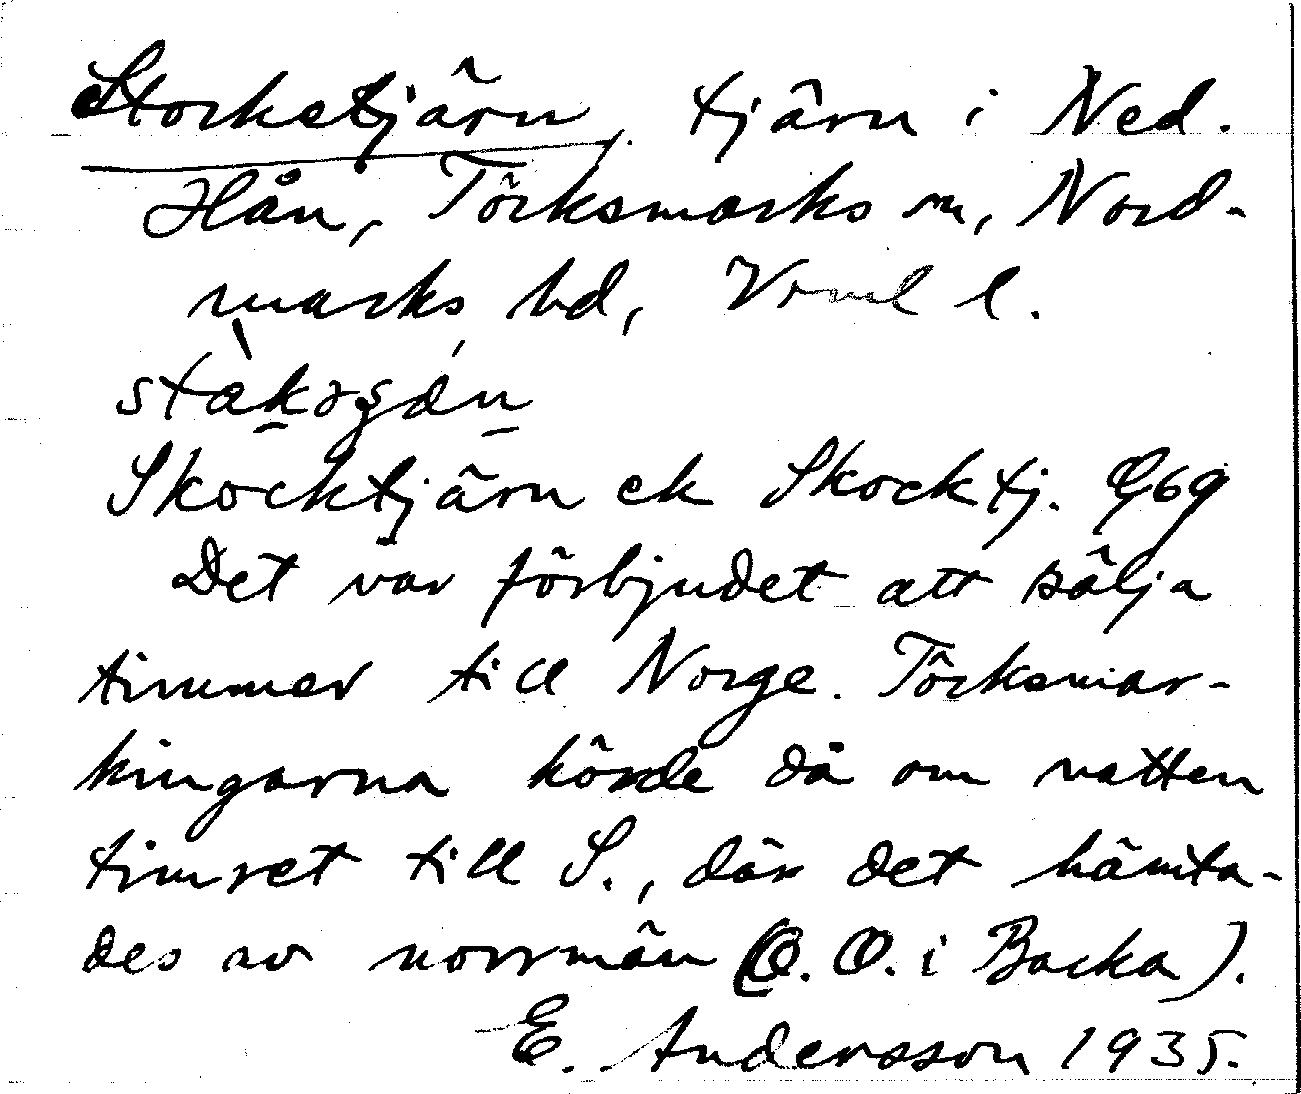 Storketjärn, tjärn i Ned.
Hån, Töcksmarks sn, Nord-
marks hd, Vrml l.
Skocktjärn ek Skocktj. G69
Det var förbjudet att sälja
timmer till Norge. Töcksmar-
kingarna körde då om natten
timret till S., där det hämta-
des av norrmän (O. O. i Backa).
E. Andersson 1935.